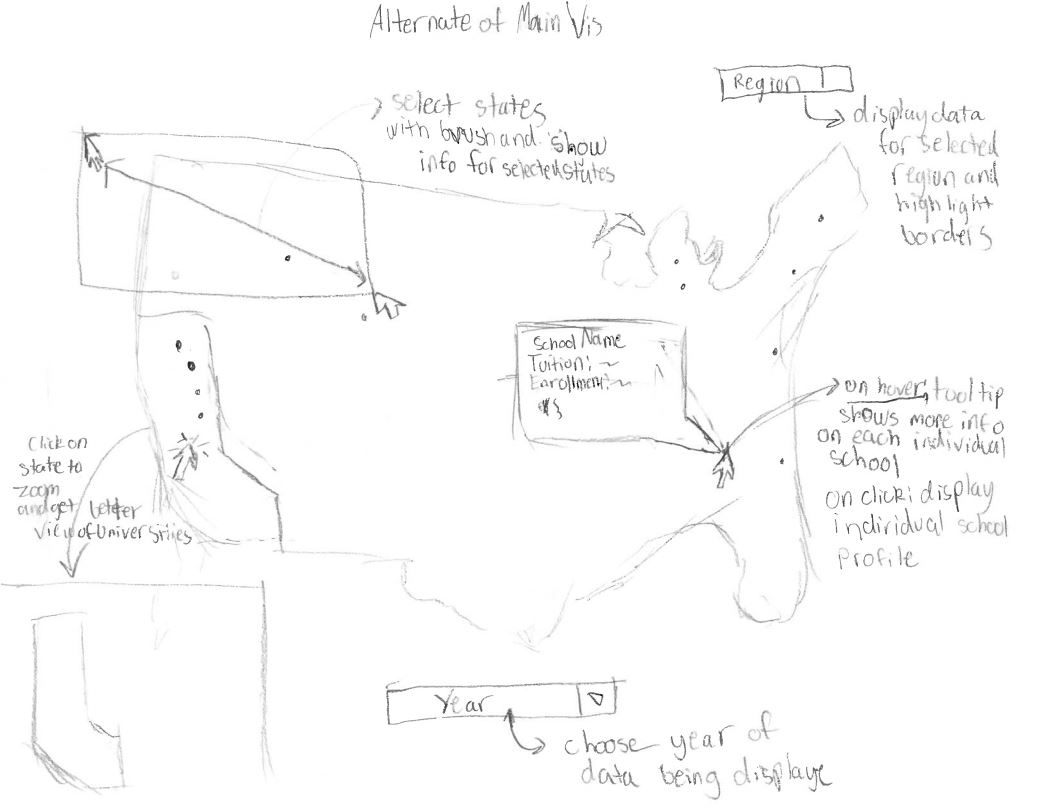 Alternate of Main Vis
Region
display data
for selected
region and
highlight
borders
select states
with brush and show
info for selected states
School Name
Tuition: ~
Enrollment: ~
on hover, tool tip
shows more info
on each individual
school
on click: display
individual school
profile
Click on
state to
zoom
and get better
view of Universities
Year
choose year of
data being displaye